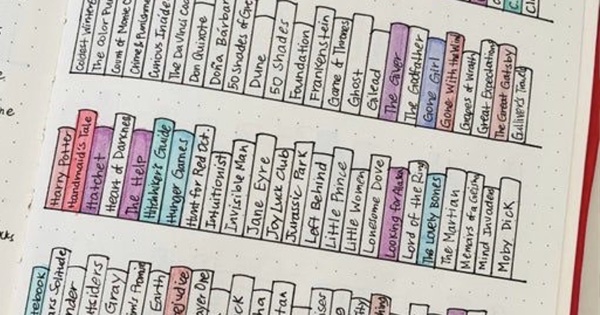 Coldest Winter
The Color Pur
Count of Monte C
Crime & Punishme
Curious Incide
The DaVinci Co
Don Quixote
Doña Bárbar
50 Shades of Gre
Dune
50 Shades
Foundation
Frankenstein
Game of Thrones
Ghost
Gilead
The Giver
The Godfather
Gone Girl
Gone With the Win
Grapes of Wrath
Great Expectation
The Great Gatsby
Gulliver's Travels
Harry Potter
Handmaid's Tale
Hatchet
Heart of Darknes
The Help
Hitchhiker's Guide
Hunger Games
Hunt for Red Oct.
Intuitionist
Invisible Man
Jane Eyre
Joy Luck Club
Jurassic Park
Left Behind
Little Prince
Little Women
Lonesome Dove
Looking for Alaska
Lord of the Ring
The Lovely Bones
The Martian
Memoirs of a Geisha
Mind Invaded
Moby Dick
tebook
ars Solitude
nder
tsiders
Gray
m's Promis
Earth
rejudice
ayer One
ck
ha
tax
iser